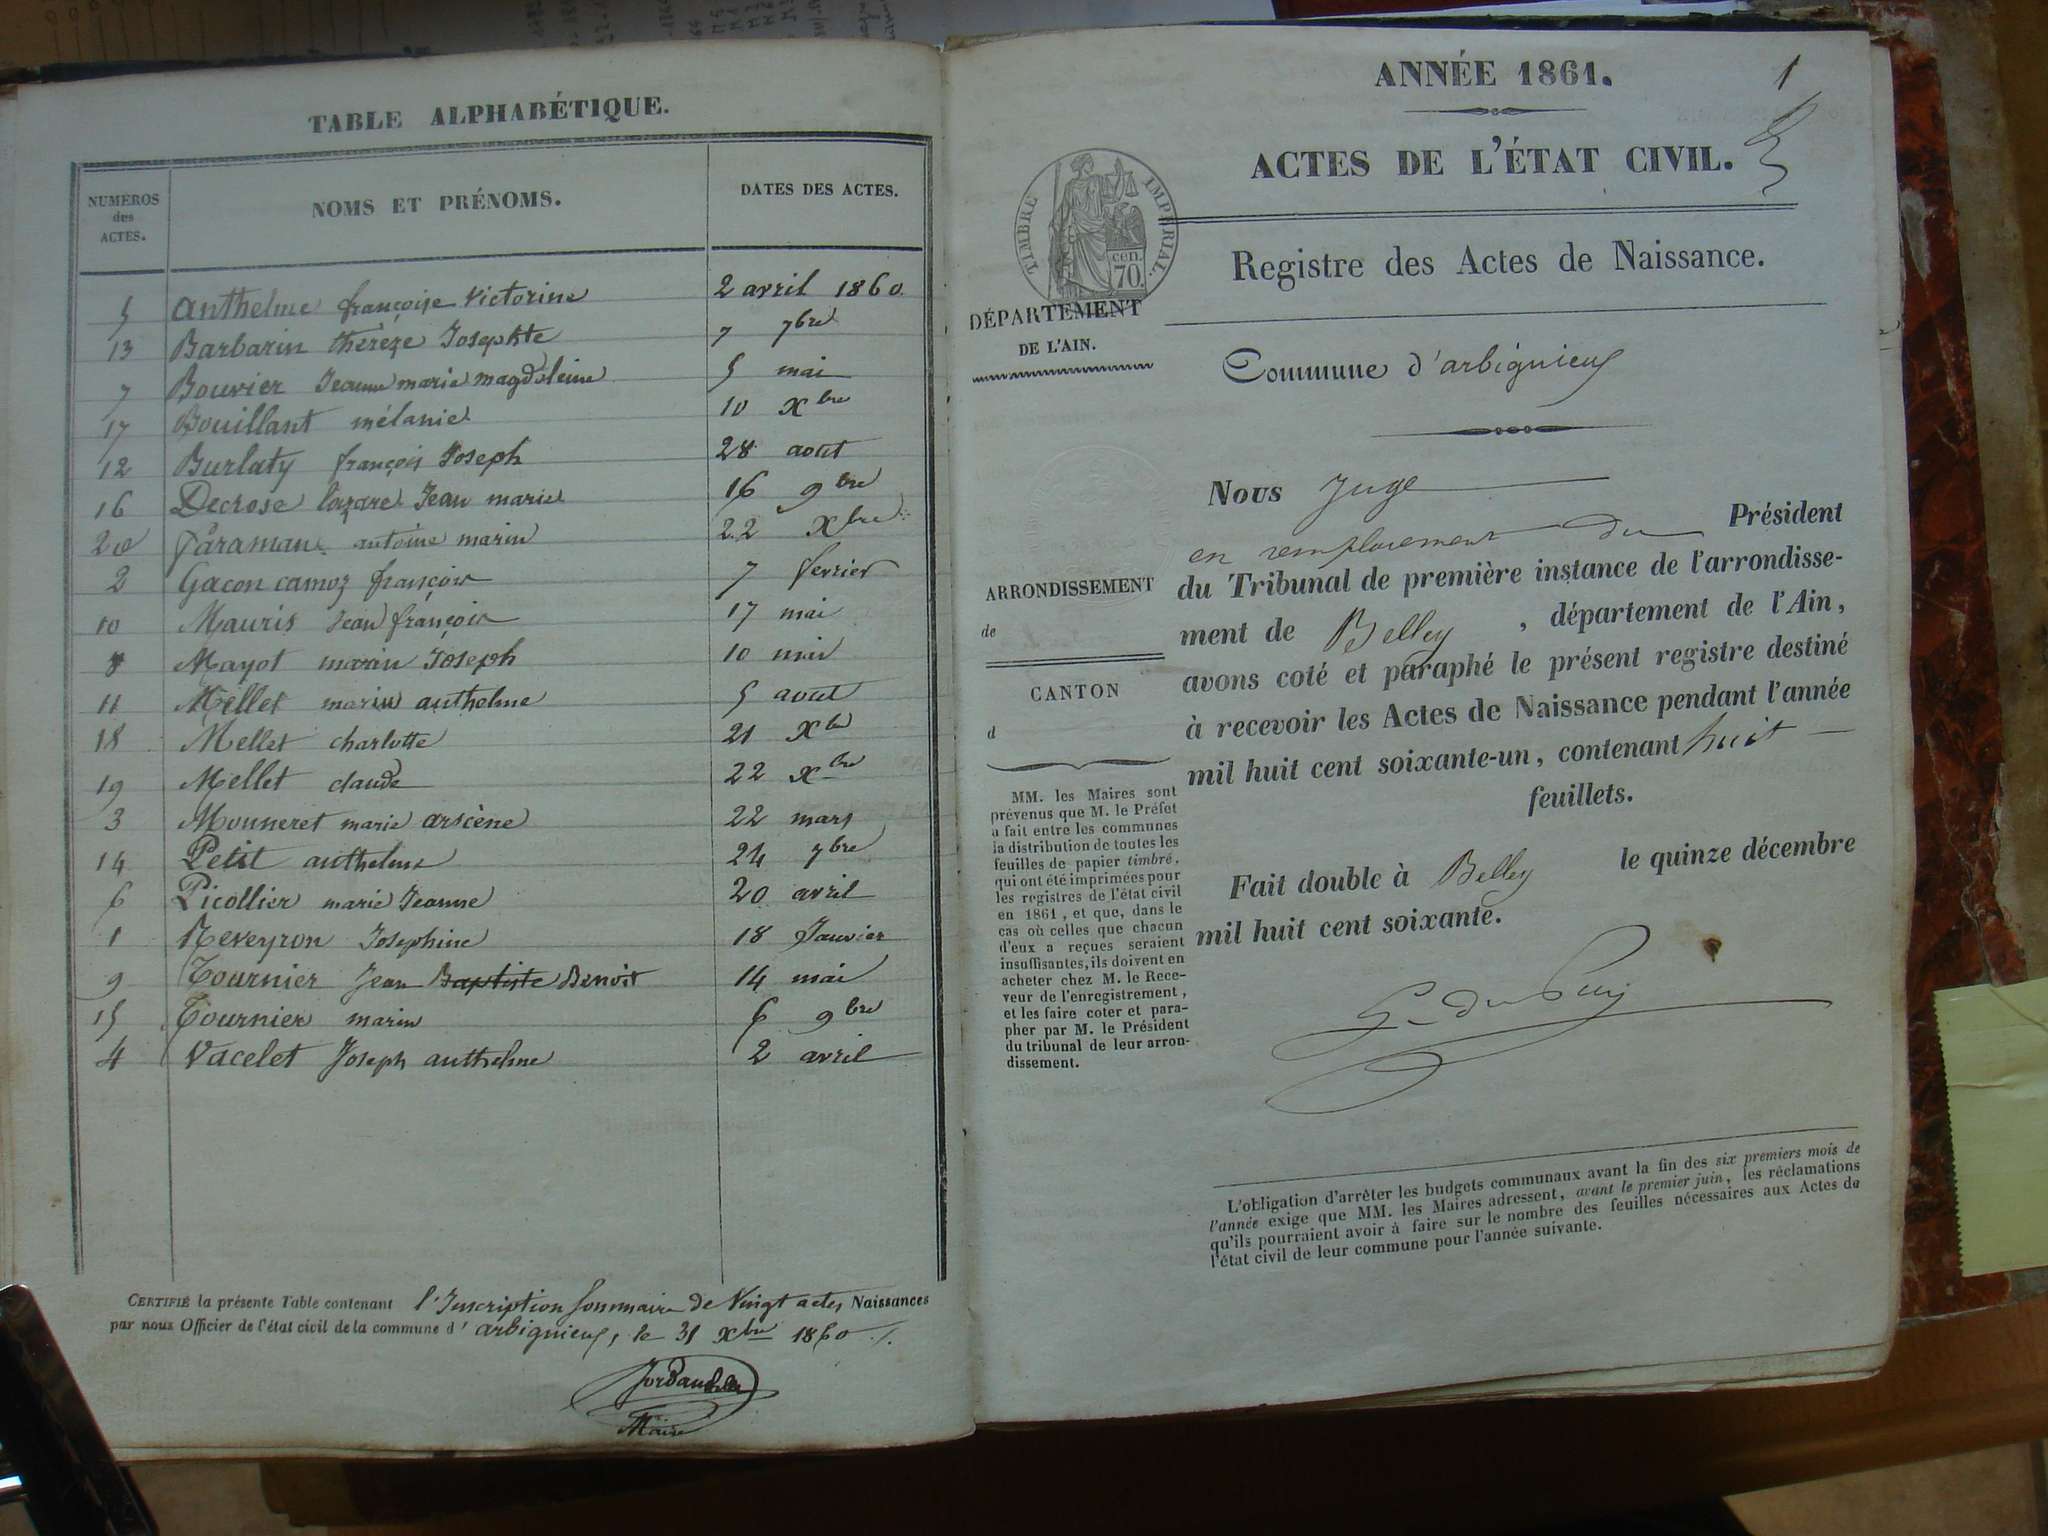 TABLE ALPHABÉTIQUE.
NUMÉROS des ACTES.
NOMS ET PRÉNOMS.
DATES DES ACTES.
5 anthelme françoise victorine 2 avril 1860
13 Barbarin thérèze Josephte 7 7bre
7 Bouvier Jeanne marie magdeleine 5 mai
17 Bouillant mélanie 10 Xbre
12 Burlaty françois Joseph 28 aout
16 Decrose lazare Jean marie 16 9bre
20 antoine marin 22 Xbre
2 Gacon camoz françois 7 fevrier
10 Mauris Jean françois 17 mai
8 Mayot marin Joseph 10 mai
11 Mellet marin anthelme 5 aout
18 Mellet charlotte 21 Xbre
19 Mellet claude 22 Xbre
3 Monneret marie arsène 22 mars
14 Petit anthelme 24 7bre
6 Picollier marie Jeanne 20 avril
1 Reveyron Josephine 18 Janvier
9 Tournier Jean Baptiste Benoit 14 mai
15 Tournier marin 6 9bre
4 Vacelet Joseph anthelme 2 avril
CERTIFIÉ la présente Table contenant l'Inscription Sommaire de Vingt actes Naissances
par nous Officier de l'état civil de la commune d' arbignieu, le 31 Xbre 1860
Maire
1
ANNÉE 1861.
ACTES DE L'ÉTAT CIVIL.
TIMBRE IMPÉRIAL.
cen.
70.
Registre des Actes de Naissance.
DÉPARTEMENT
DE L'AIN.
Commune d'arbignieu
Nous Juge
en remplacement du Président
du Tribunal de première instance de l'arrondisse-
ment de Belley, département de l'Ain,
avons coté et paraphé le présent registre destiné
à recevoir les Actes de Naissance pendant l'année
mil huit cent soixante-un, contenant huit
feuillets.
Fait double à Belley le quinze décembre
mil huit cent soixante.
ARRONDISSEMENT
de
CANTON
d
MM. les Maires sont
prévenus que M. le Préfet
a fait entre les communes
la distribution de toutes les
feuilles de papier timbré,
qui ont été imprimées pour
les registres de l'état civil
en 1861, et que, dans le
cas où celles que chacun
d'eux a reçues seraient
insuffisantes, ils doivent en
acheter chez M. le Rece-
veur de l'enregistrement,
et les faire coter et para-
pher par M. le Président
du tribunal de leur arron-
dissement.
L'obligation d'arrêter les budgets communaux avant la fin des six premiers mois de
l'année exige que MM. les Maires adressent, avant le premier juin, les réclamations
qu'ils pourraient avoir à faire sur le nombre des feuilles nécessaires aux Actes de
l'état civil de leur commune pour l'année suivante.